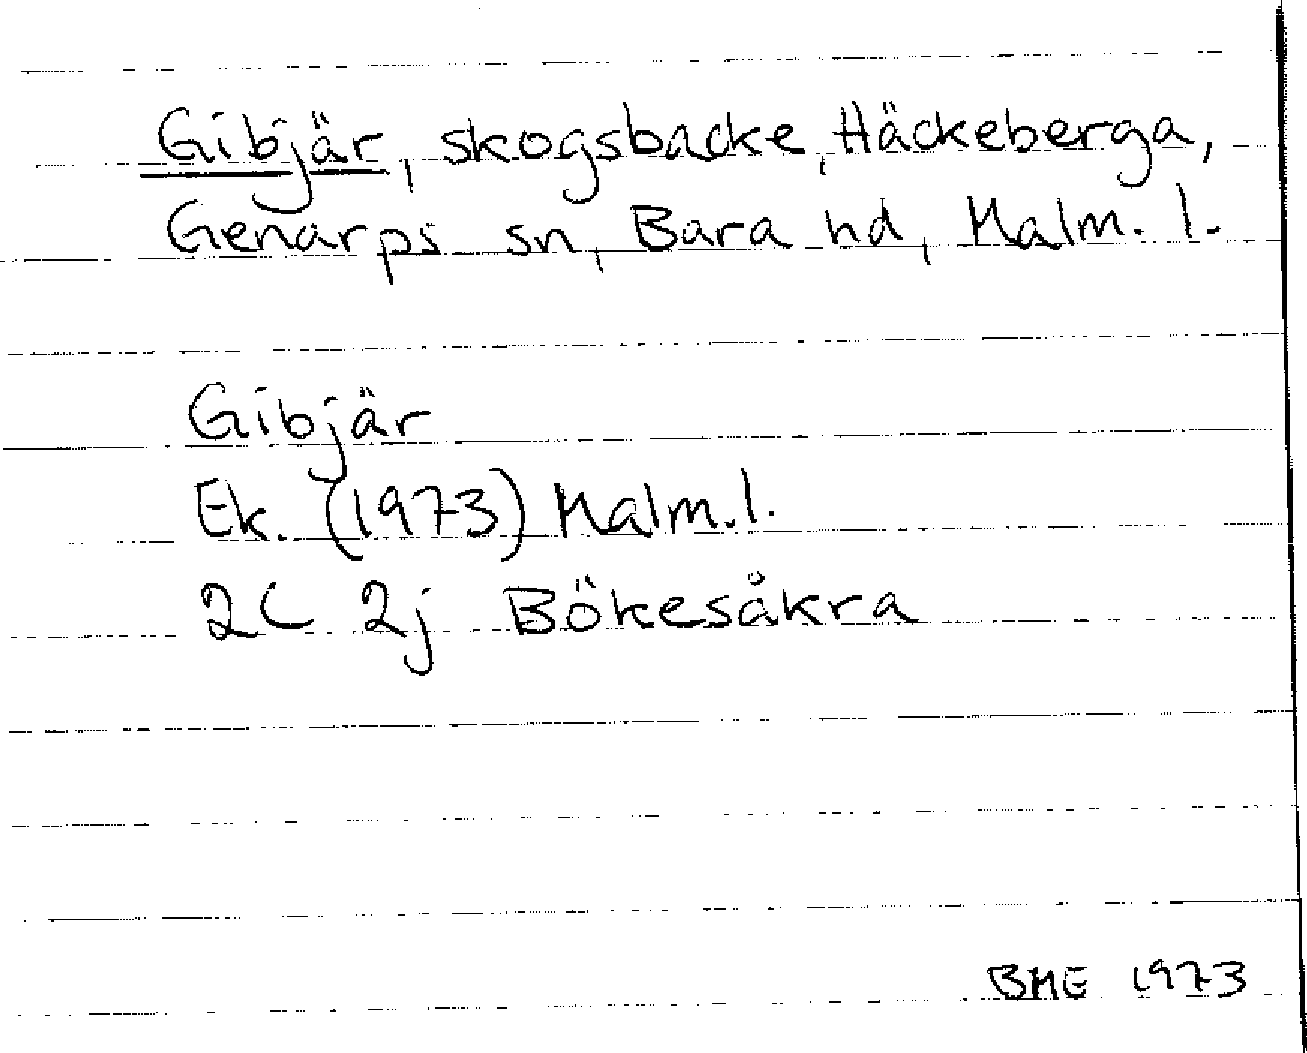 Gibjär, skogsbacke, Häckeberga,
Genarps sn, Bara hd, Malm. l.
Gibjär
Ek. (1973) Malm. l.
2C 2j Bökesåkra
BME 1973